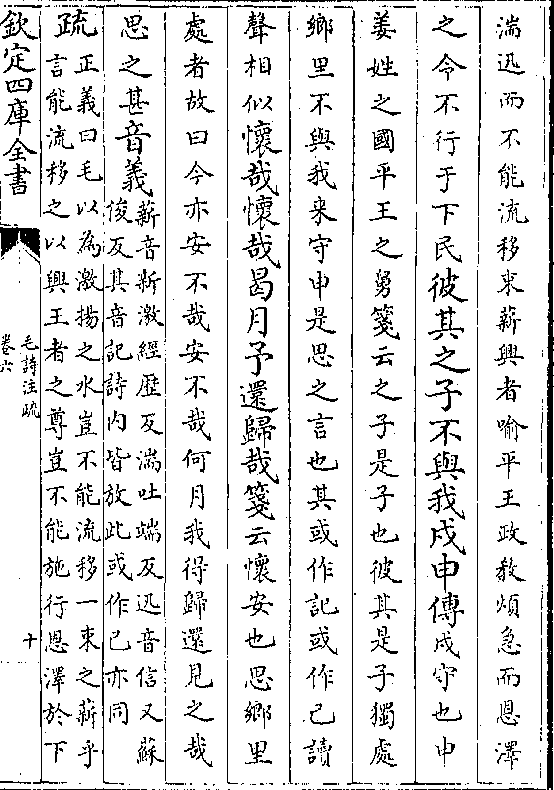 湍迅而不能流移束薪興者喻平王政教煩急而恩澤
之令不行于下民彼其之子不與我戍申傳戍守也申
姜姓之國平王之舅箋云之子是子也彼其是子獨處
鄉里不與我来守申是思之言也其或作記或作己讀
聲相似懷哉懷哉曷月予還歸哉箋云懷安也思鄉里
處者故曰今亦安不哉安不哉何月我得歸還見之哉
思之甚音義薪音新激經歴反湍吐端反迅音信又蘇
俊反其音記詩内皆放此或作已亦同
疏正義曰毛以為激揚之水豈不能流移一束之薪乎
言能流移之以興王者之尊豈不能施行恩澤於下
欽定四庫全書
毛詩注疏
卷六
十